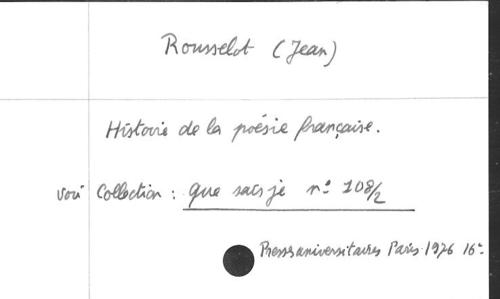 Rousselot (Jean)
Histoire de la poésie française.
voir Collection : que sais je n° 108/2
Presses universitaires Paris 1976 16°